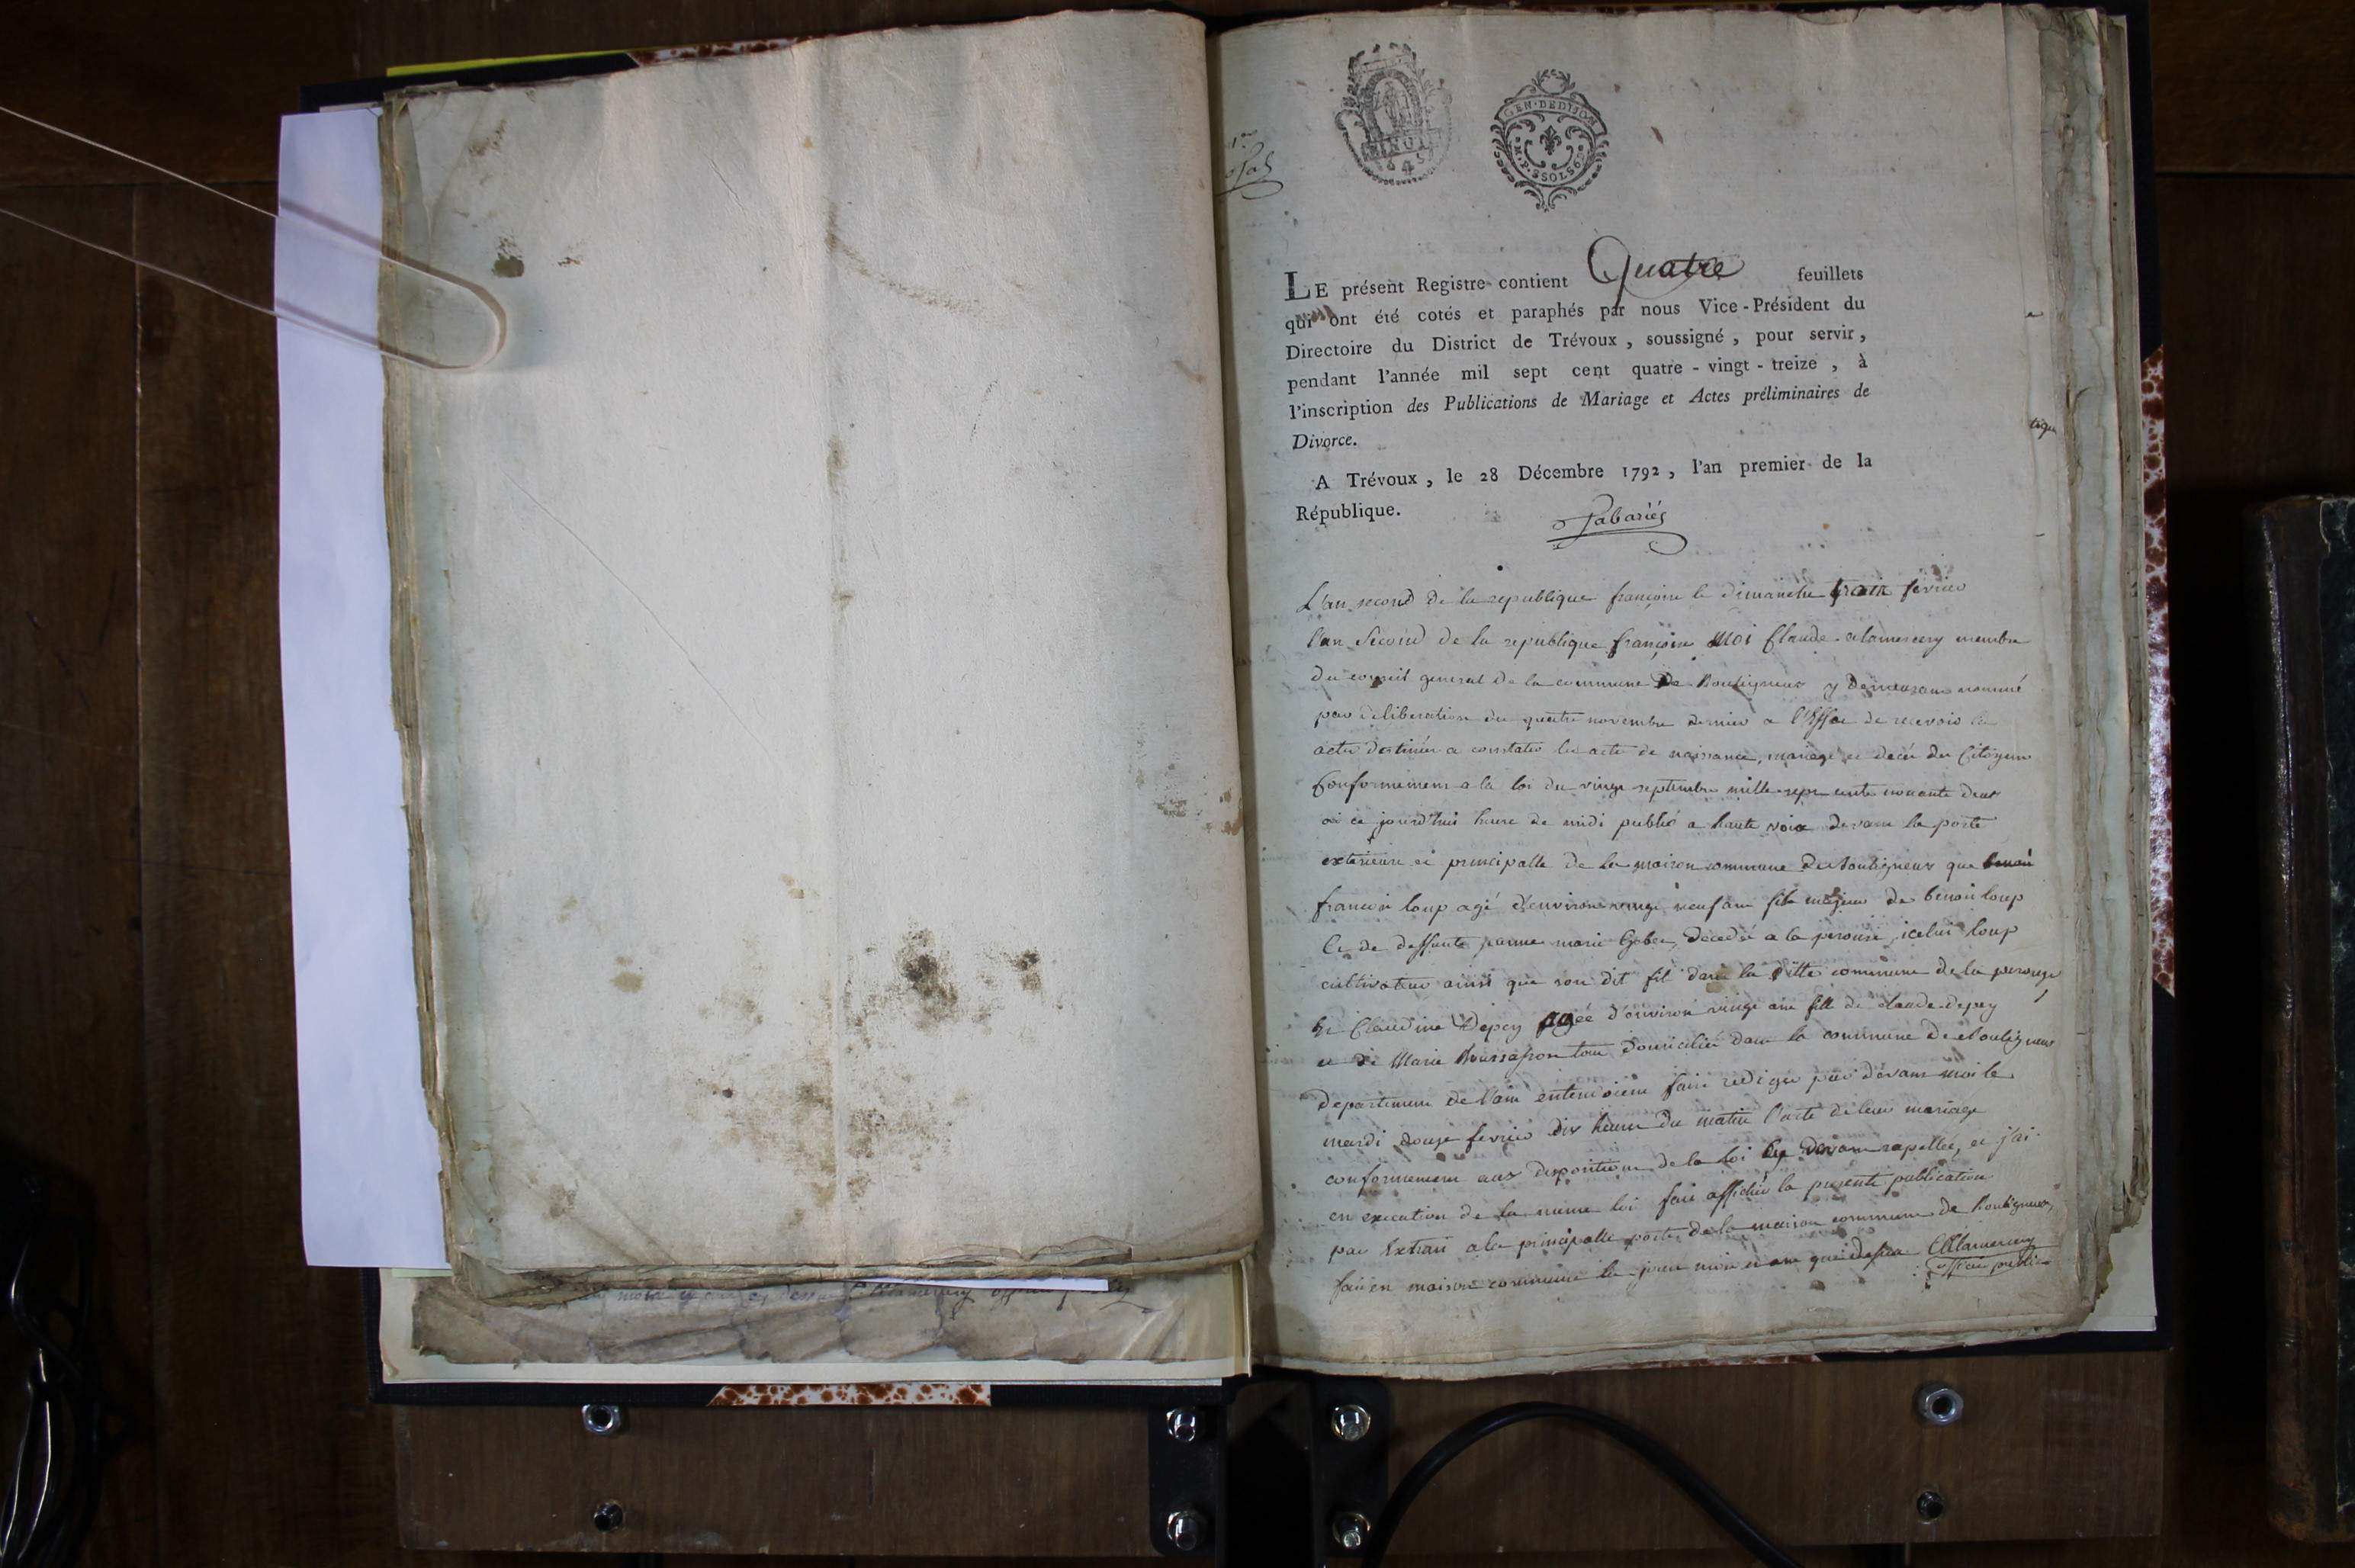 GEN · DE DIJON
M · P · 8 SOLS 6 D
LE présent Registre contient Quatre feuillets
qui ont été cotés et paraphés par nous Vice-Président du
Directoire du District de Trévoux, soussigné, pour servir,
pendant l'année mil sept cent quatre-vingt-treize, à
l'inscription des Publications de Mariage et Actes préliminaires de
Divorce.
A Trévoux, le 28 Décembre 1792, l'an premier de la
République.
L'an second de la republique françoise le dimanche trois fevrier
l'an second de la republique françoise Moi Claude alamercery membre
du conseil general de la commune De Bouligneux y Demeurant nommé
par deliberation du quatre novembre dernier a l'Effet de recevoir les
actes destinés a constater les actes de naissance, mariage et decés des Citoyens
Conformement a la loi du vingt septembre mille sept cents nonante deux
ai ce jourd'hui heure de midi publié a haute voix devant la porte
exterieure et principalle de la maison commune de Bouligneux que benoit
francois loup agé d'environ vingt neuf ans fils majeur de benoit loup
Et de deffunte jeanne marie decedée a la perouse, icelui loup
cultivateur ainsi que son dit fils dans la ditte commune de la perouse
Et Claudine Depey agée d'environ vingt ans fille de claude depey
et de Marie tous domiciliés dans la commune de Bouligneux
departement de l'ain entendoient faire rediger par devant moi le
mardi douze fevrier dix heures du matin l'acte de leur mariage
conformement aux dispositions de la loi cy devant rapellée, et j'ai
en execution de la meme loi fait afficher la presente publication
par Extrait a la principalle porte de la maison commune de Bouligneux,
fait en maison commune les jour mois et an que dessus CAlamercery
officier public